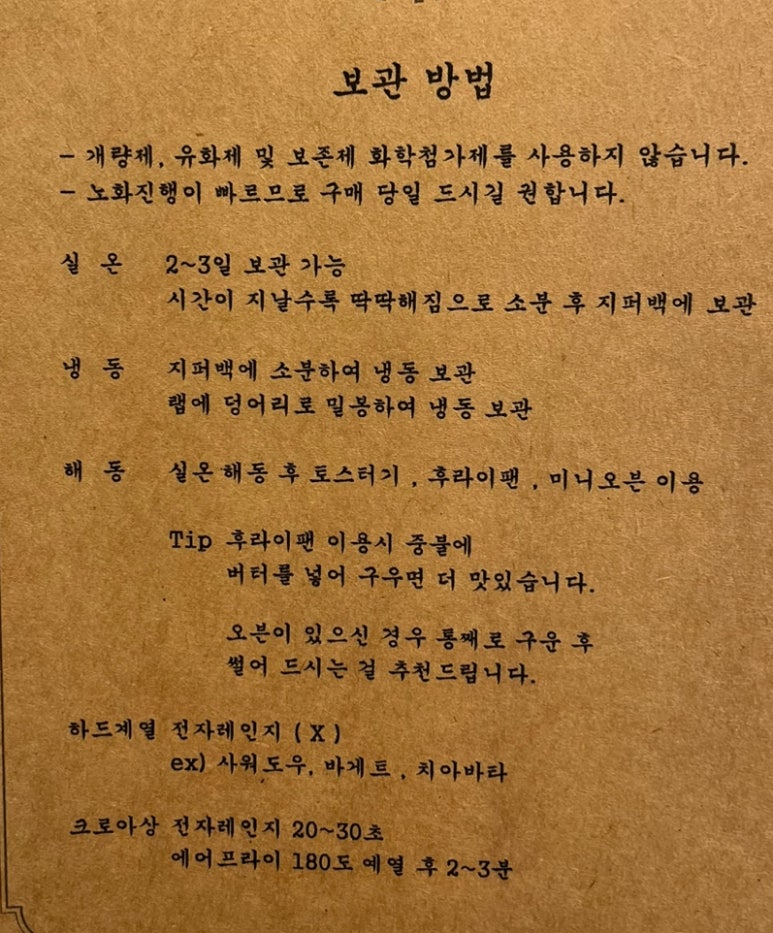 보관 방법
- 개량제, 유화제 및 보존제 화학첨가제를 사용하지 않습니다.
- 노화진행이 빠르므로 구매 당일 드시길 권합니다.
실 온 2~3일 보관 가능
시간이 지날수록 딱딱해짐으로 소분 후 지퍼백에 보관
냉 동 지퍼백에 소분하여 냉동 보관
랩에 덩어리로 밀봉하여 냉동 보관
해 동 실온 해동 후 토스터기 , 후라이팬 , 미니오븐 이용
Tip 후라이팬 이용시 중불에
버터를 넣어 구우면 더 맛있습니다.
오븐이 있으신 경우 통째로 구운 후
썰어 드시는 걸 추천드립니다.
하드계열 전자레인지 ( X )
ex) 사워도우, 바게트 , 치아바타
크로아상 전자레인지 20~30초
에어프라이 180도 예열 후 2~3분